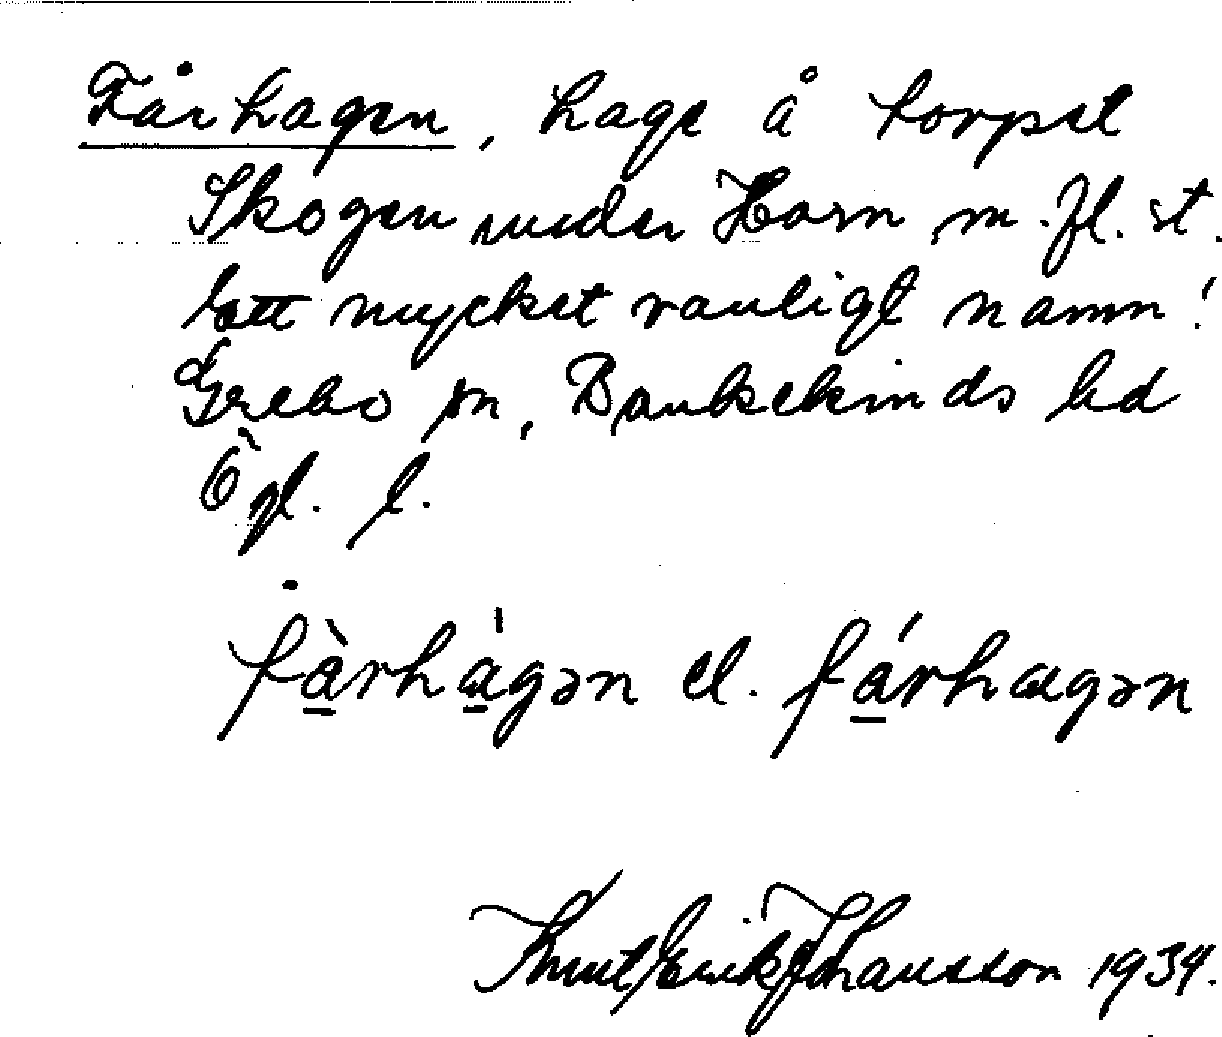 Fårhagen, hage å torpet
Skogen under Horn m. fl. st.
Ett mycket vanligt namn!
Grebo sn, Bankekinds hd
Ögl. l.
fàrhàgən el. fárhagən
Knut Erik Johansson 1934.